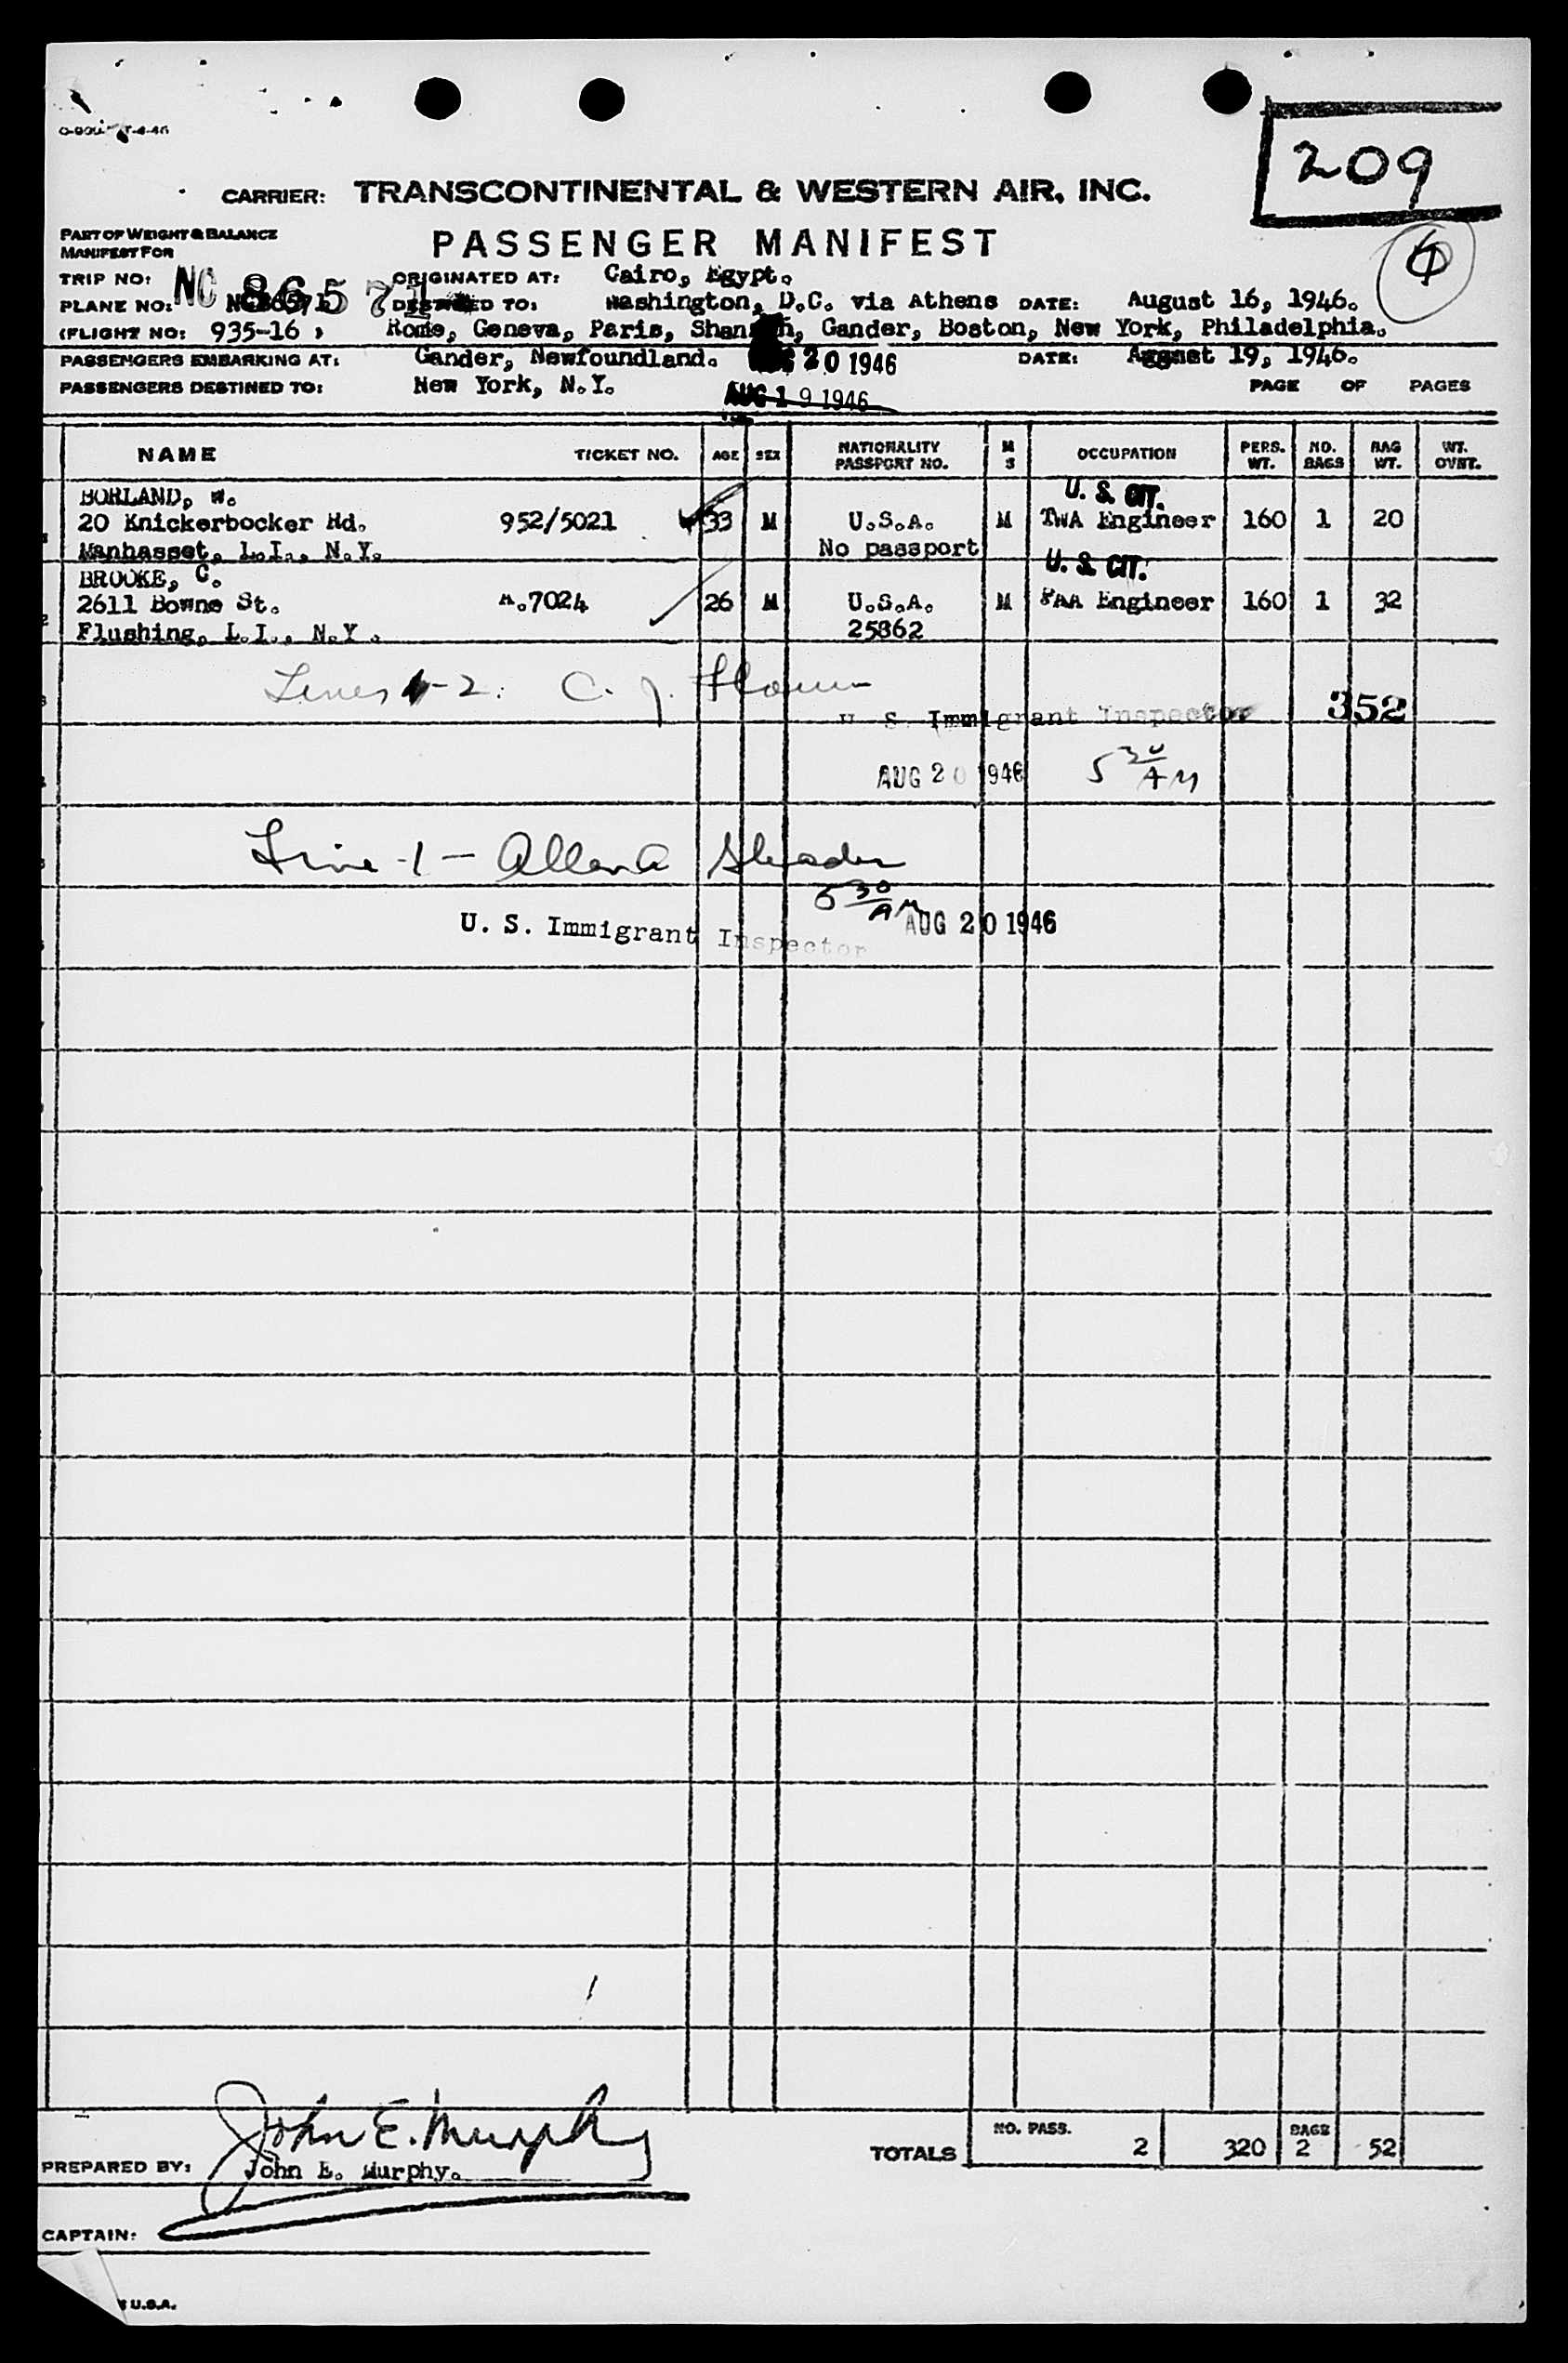 209
CARRIER: TRANSCONTINENTAL & WESTERN AIR, INC.
PART OF WEIGHT & BALANCE
MANIFEST FOR
PASSENGER MANIFEST
TRIP NO: NC 86571 ORIGINATED AT: Cairo, Egypt.
PLANE NO: DESTINED TO: Washington, D.C. via Athens DATE: August 16, 1946.
(FLIGHT NO: 935-16 ) Rome, Geneva, Paris, Gander, Boston, New York, Philadelphia.
PASSENGERS EMBARKING AT: Gander, Newfoundland. 20 1946 DATE: August 19, 1946.
PASSENGERS DESTINED TO: New York, N.Y. AUG 19 1946 PAGE OF PAGES
NAME TICKET NO. AGE SEX NATIONALITY PASSPORT NO. M S OCCUPATION PERS. WT. NO. BAGS BAG WT. WT. OVRT.
BORLAND, W. U. S. CIT.
20 Knickerbocker Rd. 952/5021 33 M U.S.A. M TWA Engineer 160 1 20
Manhasset, L.I., N.Y. No passport
BROOKE, C. U. S. CIT.
2611 Bowne St. 7024 26 M U.S.A. M Engineer 160 1 32
Flushing, L.I., N.Y. 25862
Lines 1-2: C. J.
U. S. Immigrant Inspector 352
AUG 20 1946 5 30 AM
Line -1-
5 30 AM
U. S. Immigrant Inspector AUG 20 1946
John E. Murphy
TOTALS NO. PASS. 2 320 BAGS 2 52
PREPARED BY: John E. Murphy.
CAPTAIN:
U.S.A.